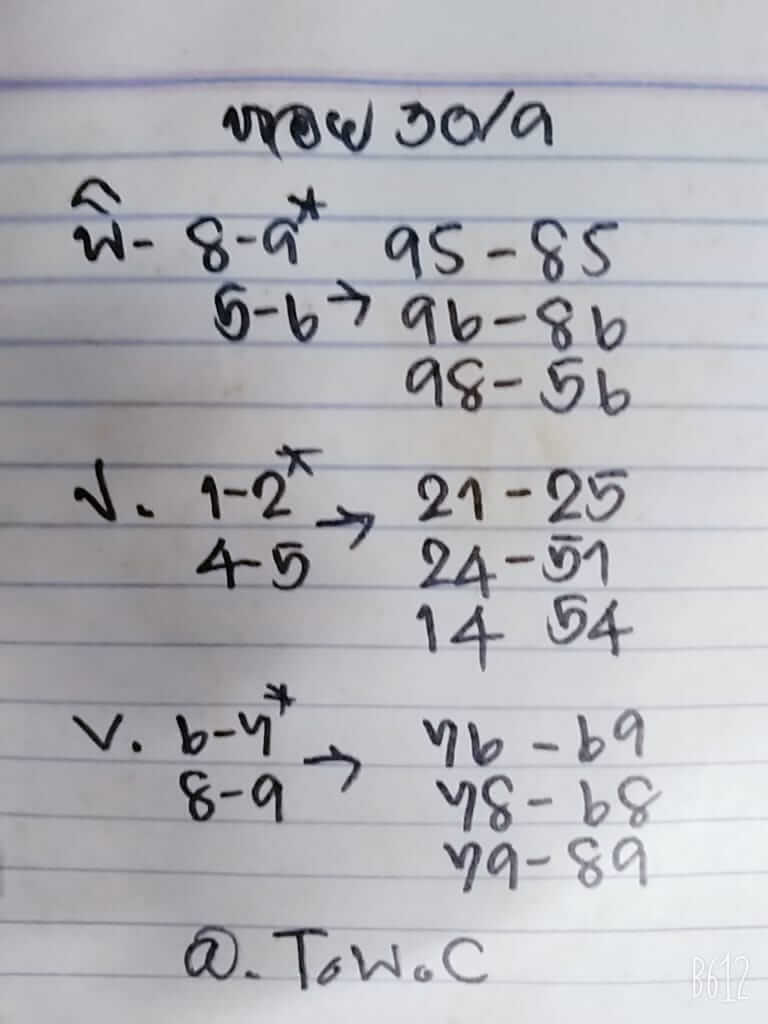 ฮานอย 30/9
พิ- 8-9* 95-85
5-6 → 96-86
98-56
ป. 1-2* → 21-25
4-5 24-51
14 54
V. 6-7* → 76-69
8-9 78-68
79-89
@. T.W.C
B612